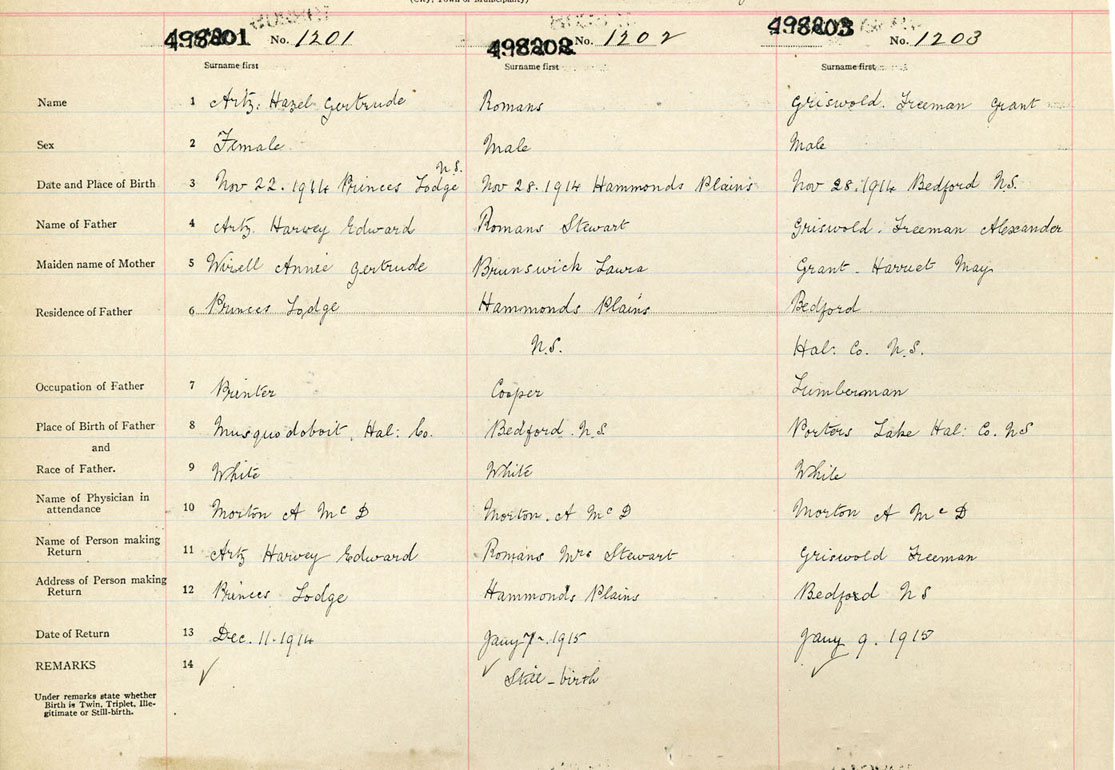 (City, Town or Municipality)
498201 No. 1201 498202 No. 1202 498203 No. 1203
Surname first Surname first Surname first
Name 1 Artz. Hazel Gertrude Romans Griswold. Freeman Grant
Sex 2 Female Male Male
N.S.
Date and Place of Birth 3 Nov 22. 1914 Princes Lodge Nov 28. 1914 Hammonds Plains Nov 28. 1914 Bedford N.S.
Name of Father 4 Artz. Harvey Edward Romans Stewart Griswold. Freeman Alexander
Maiden name of Mother 5 Annie Gertrude Brunswick Laura Grant - Harriet May
Residence of Father 6 Princes Lodge Hammonds Plains Bedford
N.S. Hal: Co. N.S.
Occupation of Father 7 Printer Cooper Lumberman
Place of Birth of Father 8 Musquodoboit, Hal: Co. Bedford. N.S Porters Lake Hal: Co. N.S
and
Race of Father. 9 White White White
Name of Physician in
attendance 10 Morton A McD Morton. A McD Morton A McD
Name of Person making
Return 11 Artz Harvey Edward Romans Mrs Stewart Griswold Freeman
Address of Person making
Return 12 Princes Lodge Hammonds Plains Bedford N S
Date of Return 13 Dec. 11. 1914 Jany 7. 1915 Jany 9. 1915
REMARKS 14 ✓ ✓ Still-birth ✓
Under remarks state whether
Birth is Twin, Triplet, Ille-
gitimate or Still-birth.